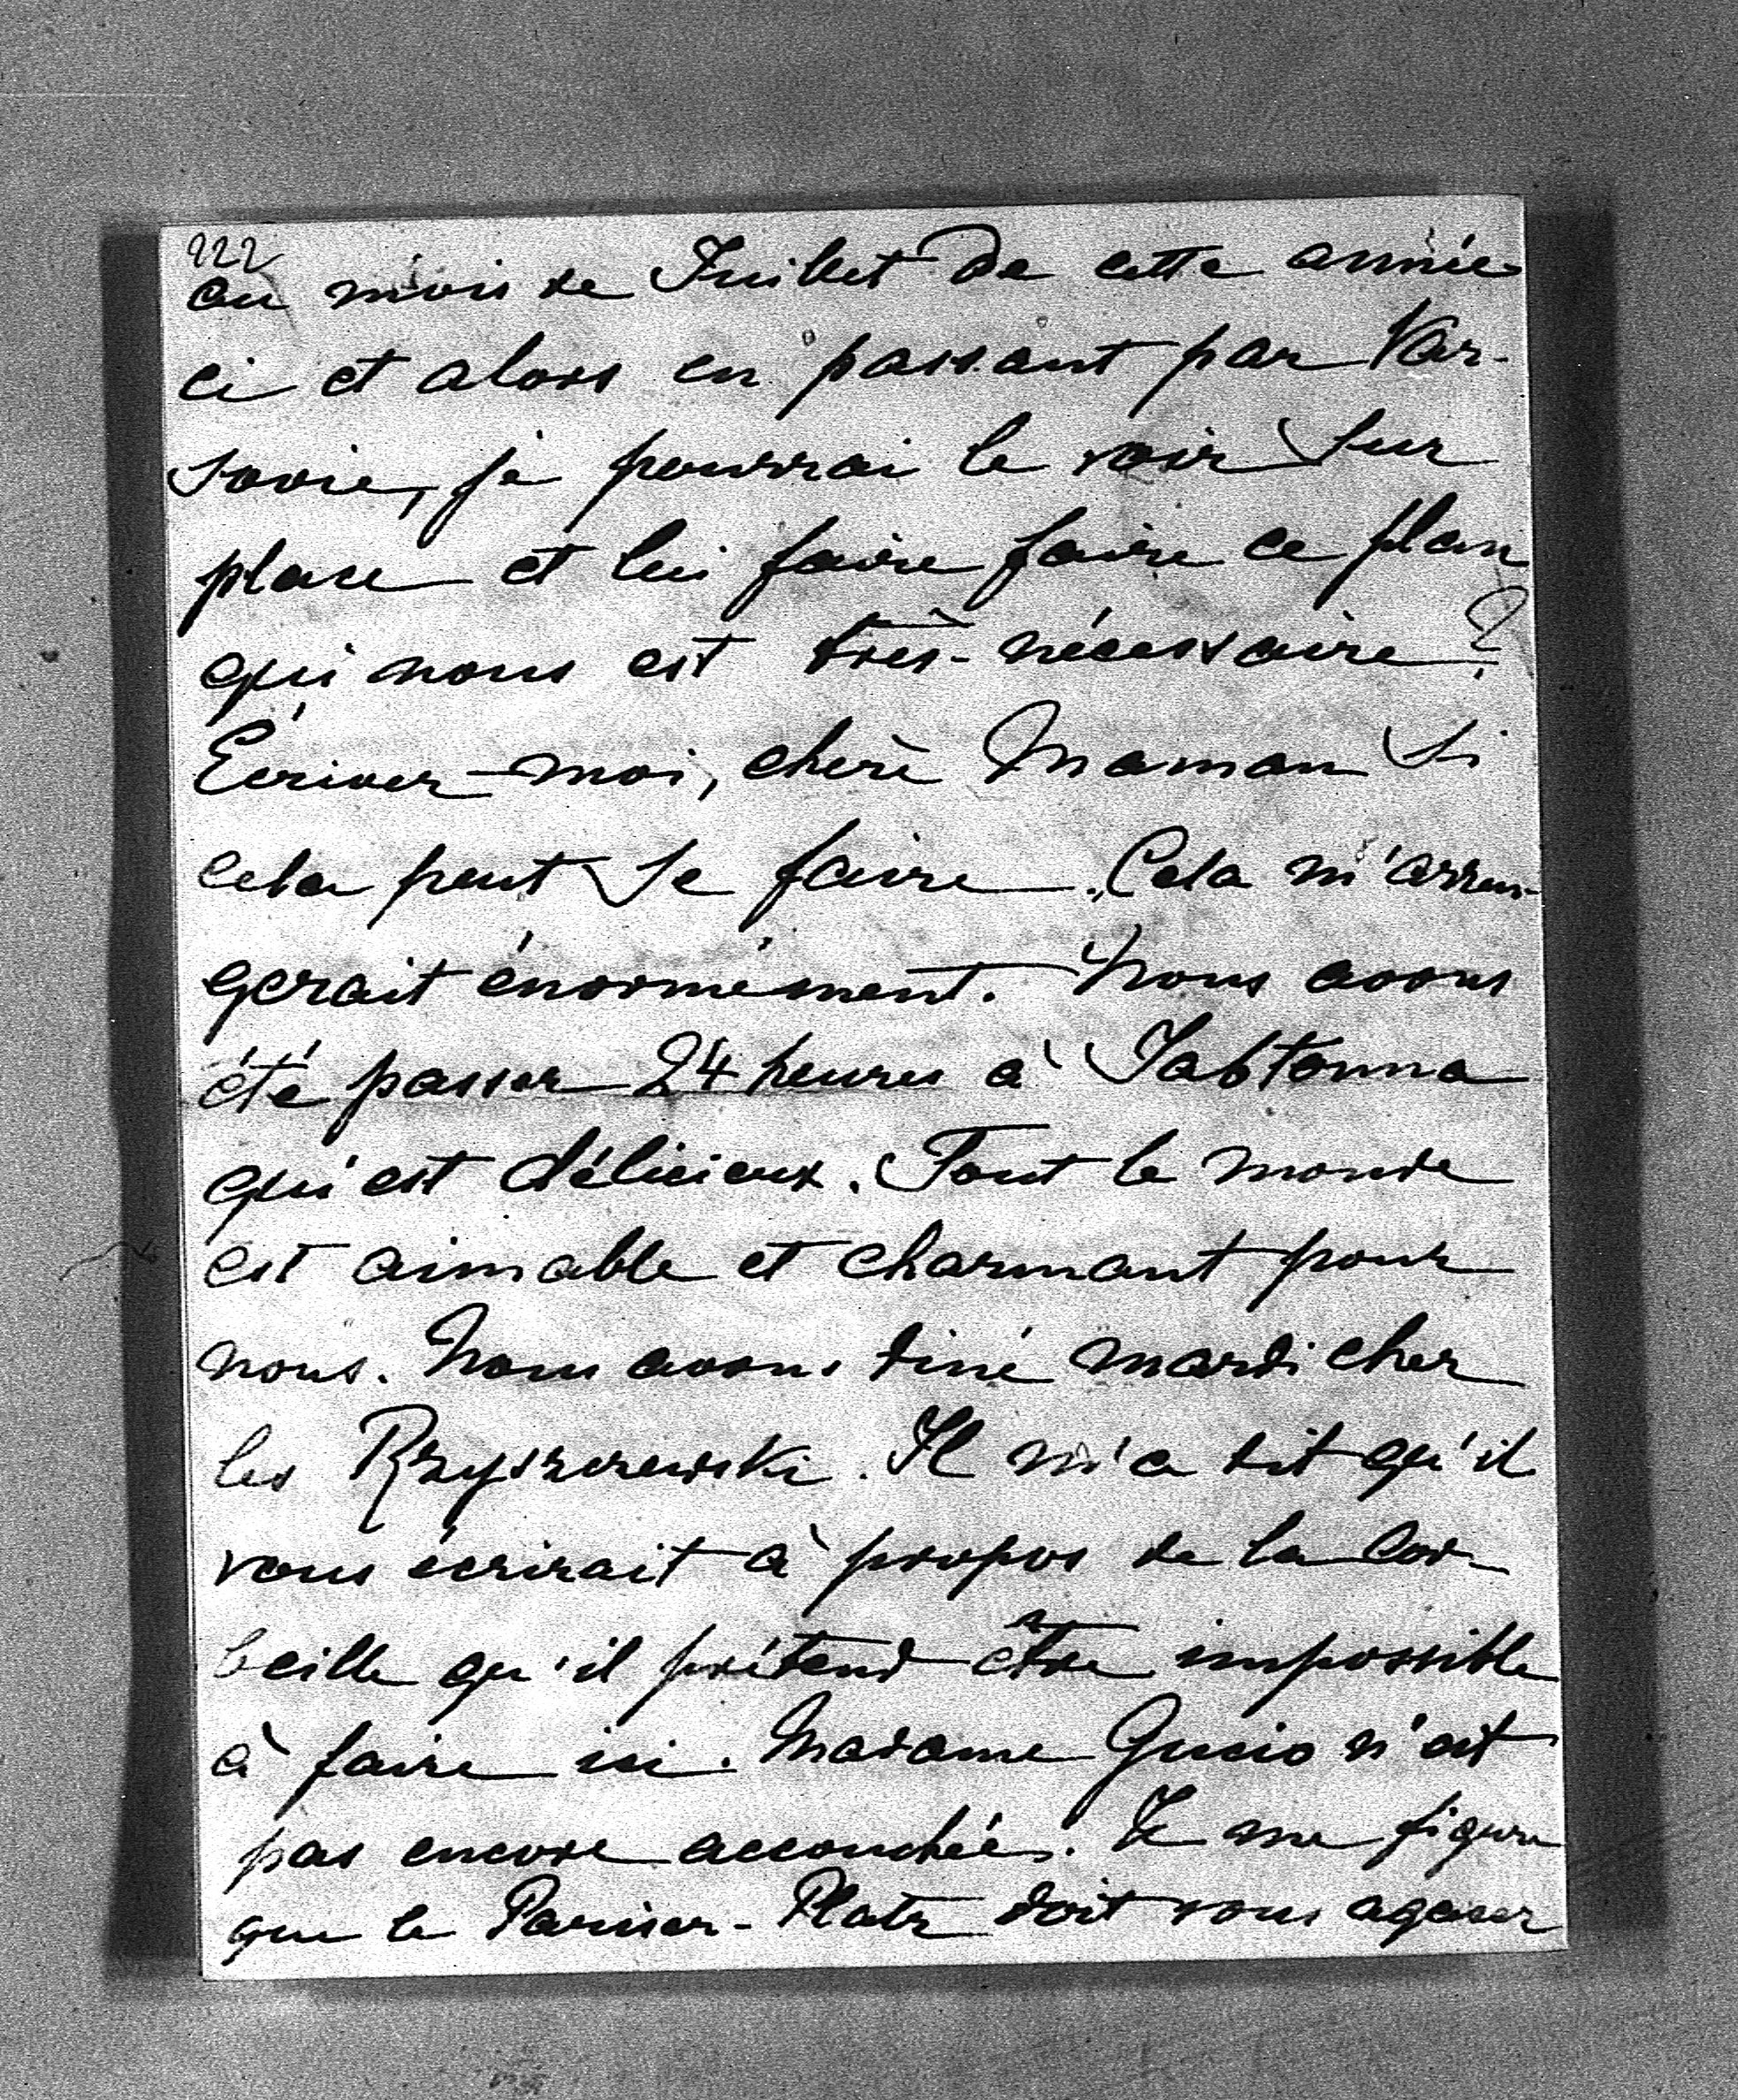 222
au mois de Juillet de cette année
ci et alors en passant par Var-
sovie, je pourrai le voir sur
place et lui faire faire ce plan
qui nous est très-nécessaire?
Écrivez-moi, chère Maman si
cela peut se faire. Cela m'arran-
gerait énormément. Nous avons
été passer 24 heures à Jabłonna
qui est délicieux. Tout le monde
est aimable et charmant pour
nous. Nous avons diné mardi chez
les Rzyszczewski. Il m'a dit qu'il
vous écrirait à propos de la Cor-
beille qu'il prétend être impossible
à faire ici. Madame Gucio n'est
pas encore accouchée. Je me figure
que le Pariser-Platz doit vous agacer